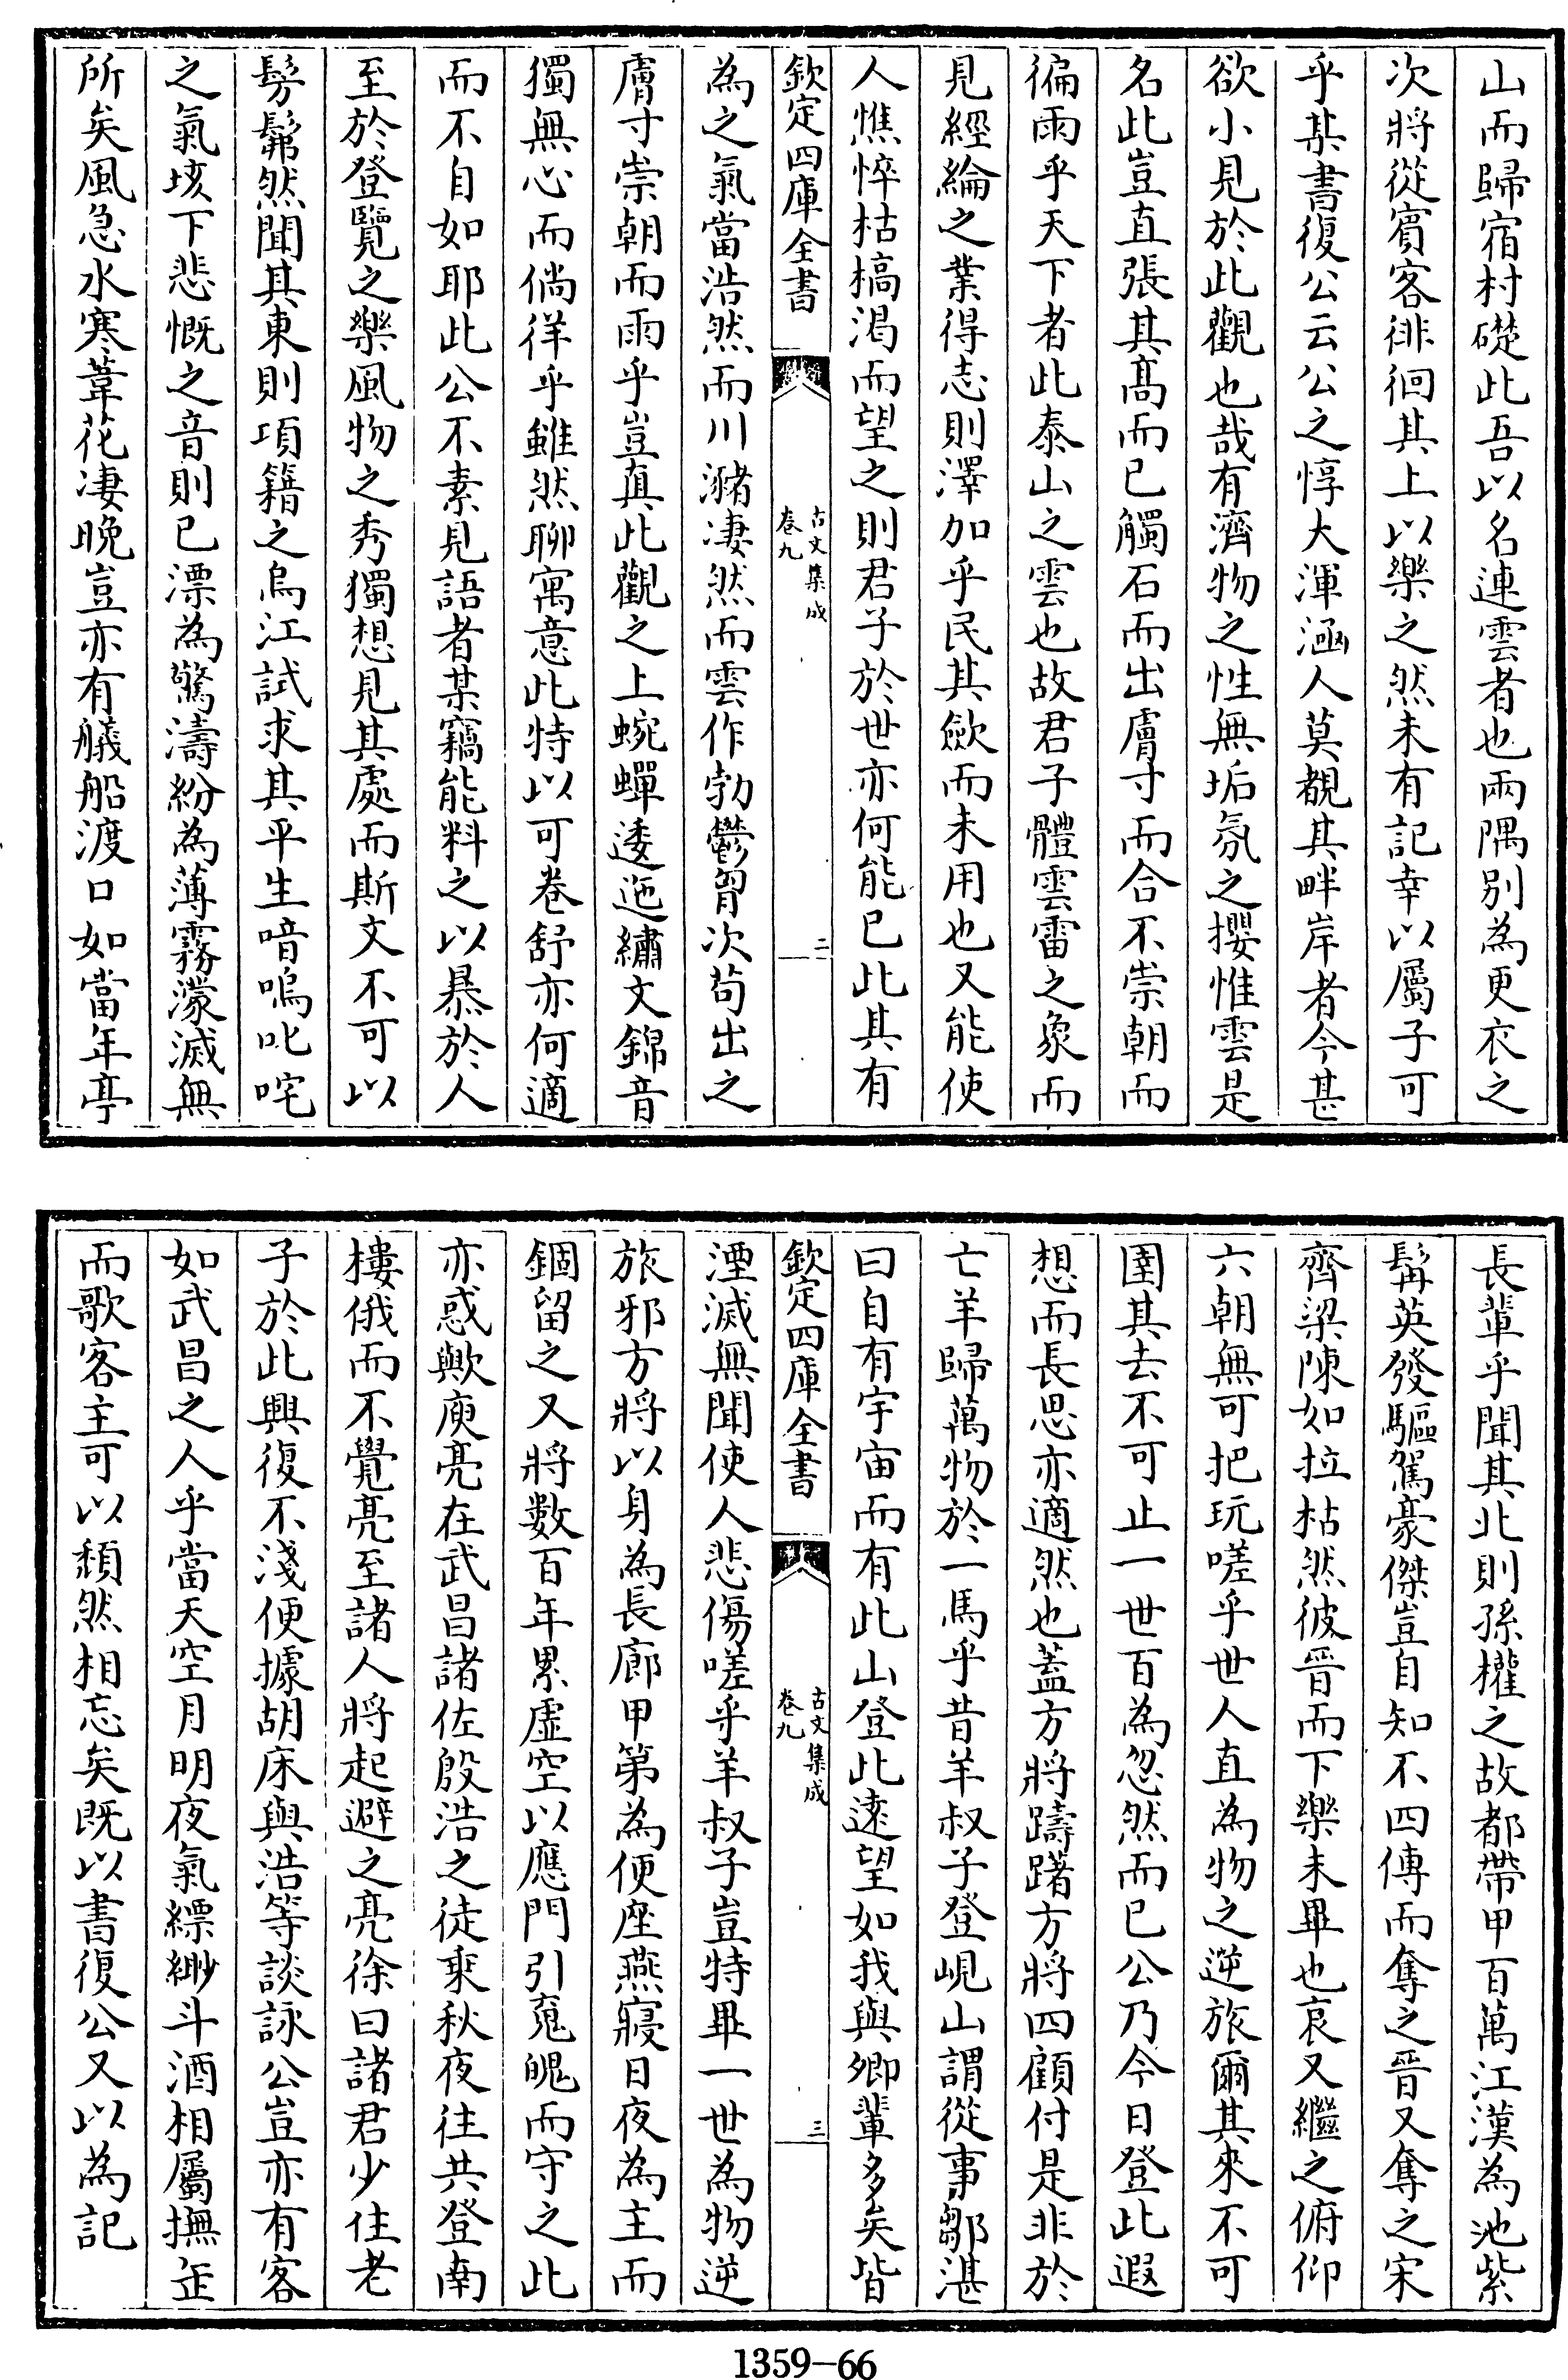 山而歸宿村礎此吾以名連雲者也兩隅别為更衣之
次將從賓客徘徊其上以樂之然未有記幸以屬子可
乎某書復公云公之惇大渾涵人莫覩其畔岸者今甚
欲小見於此觀也哉有濟物之性無垢氛之攖惟雲是
名此豈直張其髙而已觸石而出膚寸而合不崇朝而
徧雨乎天下者此泰山之雲也故君子體雲雷之象而
見經綸之業得志則澤加乎民其歛而未用也又能使
人憔悴枯槁渴而望之則君子於世亦何能已此其有
欽定四庫全書
古文集成
卷九
二
為之氣當浩然而川瀦凄然而雲作勃鬱胷次苟出之
膚寸崇朝而雨乎豈真此觀之上蜿蟬逶迤繡文錦音
獨無心而倘徉乎雖然聊寓意此特以可卷舒亦何適
而不自如耶此公不素見語者某竊能料之以㬥於人
至於登覽之樂風物之秀獨想見其處而斯文不可以
髣髴然聞其東則項籍之烏江試求其平生喑嗚叱咤
之氣垓下悲慨之音則已漂為驚濤紛為薄霧濛滅無
所矣風急水寒葦花凄晚豈亦有艤船渡口如當年亭
長輩乎聞其北則孫權之故都帶甲百萬江漢為池紫
髯英發驅駕豪傑豈自知不四傳而奪之晉又奪之宋
齊梁陳如拉枯然彼晉而下樂未畢也哀又繼之俯仰
六朝無可把玩嗟乎世人直為物之逆旅爾其來不可
圉其去不可止一世百為忽然而已公乃今日登此遐
想而長思亦適然也蓋方將躊躇方將四顧付是非於
亡羊歸萬物於一馬乎昔羊叔子登峴山謂從事鄒湛
曰自有宇宙而有此山登此逺望如我與卿輩多矣皆
欽定四庫全書
古文集成
卷九
三
湮滅無聞使人悲傷嗟乎羊叔子豈特畢一世為物逆
旅邪方將以身為長廊甲第為便座燕寢日夜為主而
錮留之又將數百年累虛空以應門引䰟魄而守之此
亦惑歟庾亮在武昌諸佐殷浩之徒乘秋夜往共登南
樓俄而不覺亮至諸人將起避之亮徐曰諸君少住老
子於此興復不淺便據胡床與浩等談詠公豈亦有客
如武昌之人乎當天空月明夜氣縹緲斗酒相屬撫缶
而歌客主可以頽然相忘矣既以書復公又以為記
1359—66